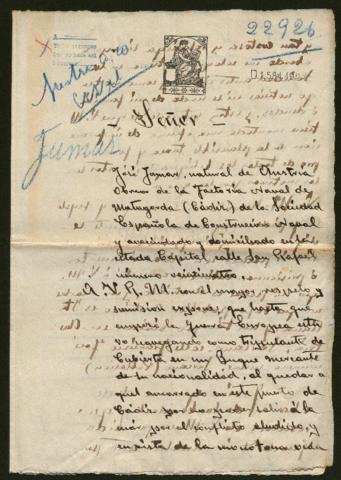 22926
Señor
Jumar
José Jumar, natural de Austria
Obrero de la Factoria Naval de
Matagorda (Cádiz) de la Sociedad
Española de Construcción Naval
y avecindado y domiciliado en la
citada Capital calle San Rafael
número veinticuatro
A V. R. M. con el mayor respeto y
sumision expone, que hasta que
empezó la guerra Europea estu
vo navegando como tripulante de
Cubierta en un Buque mercante
de su nacionalidad, al quedar a
quel amarrado en este puerto de
Cádiz por no poder salir á la
mar por el conflicto aludido, y
en vista de la monotona vida